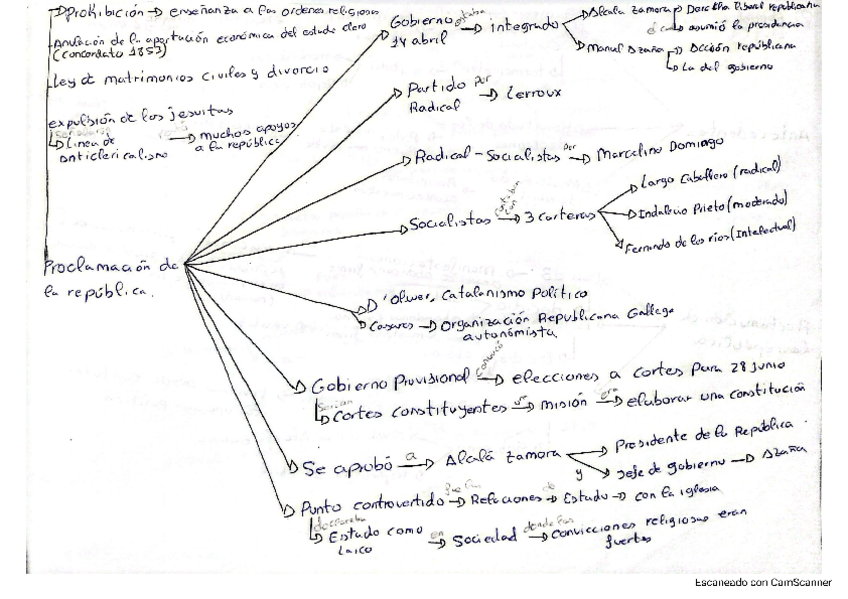 Prohibición → enseñanza a las ordenes religiosas
Anulación de la aportación económica del estado clero
(concordato 1853)
Ley de matrimonios civiles y divorcio
expulsión de los jesuitas
Línea de anticlericalismo → muchos apoyos a la república
Proclamación de
la república.
Gobierno 14 abril estaba → integrado
Alcala zamora → Derecha liberal republicana
asumió la presidencia
Manuel Azaña → Acción republicana
La del gobierno
Partido Radical por → Lerroux
Radical-Socialistas por → Marcelino Domingo
Socialistas contaban con → 3 carteras
Largo Caballero (radical)
Indalecio Prieto (moderado)
Fernando de los ríos (Intelectual)
D'Olwer, Catalanismo Político
Casares → Organización Republicana Gallega
autonómista
Gobierno Provisional convocó → elecciones a cortes para 28 junio
serían
Cortes constituyentes → misión era → elaborar una constitución
Se aprobó a → Alcalá zamora
Presidente de la República
y
Jefe de gobierno → Azaña
Punto controvertido → Relaciones de → Estado → con la iglesia
declaraba
Estado como laico en → Sociedad donde las → convicciones religiosas eran
fuertes
Escaneado con CamScanner